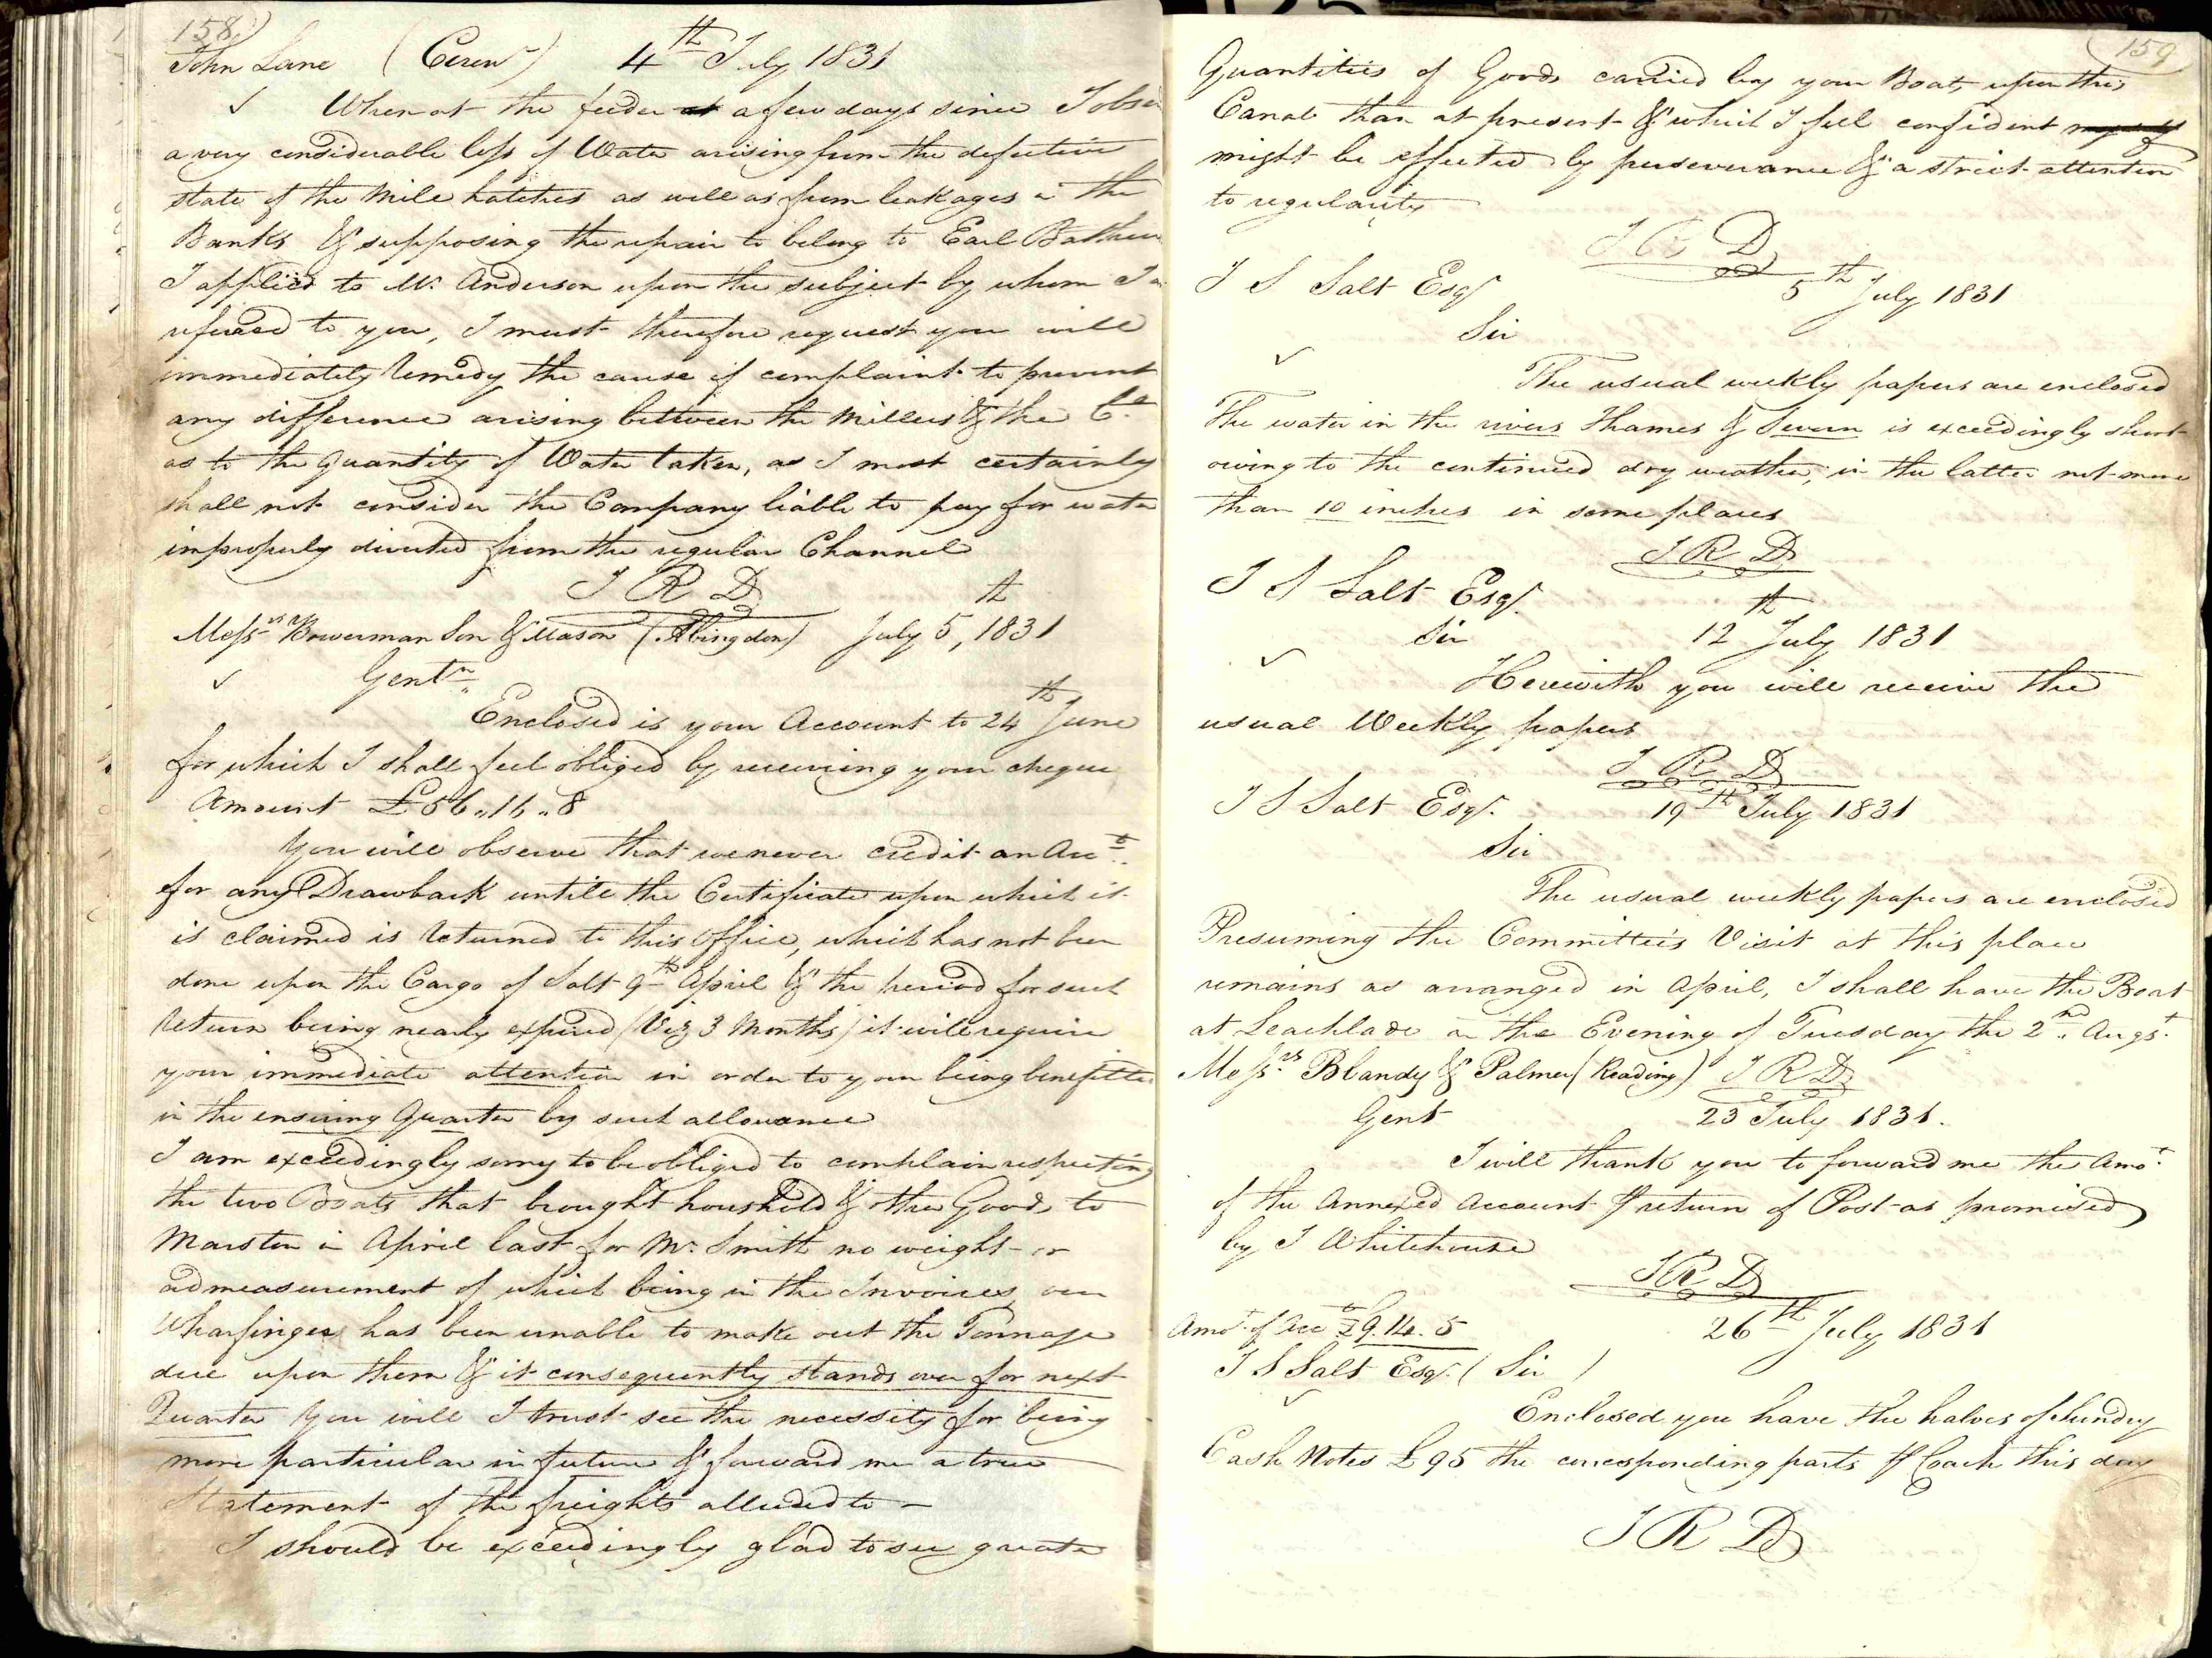 158
John Lane (Ceren^r) 4th July 1831
When at the feeder at a few days since I obser
a very considerable loss of Water arising from the defective
state of the Mile hatches as well as from leakages in the
Banks & supposing the repair to belong to Earl Bathur
I applied to Mr. Anderson upon the subject by whom I
refered to you, I must therefore request you will
immediately Remedy the cause of complaint to prevent
any difference arising between the Millers & the Co.
as to the Quantity of Water taken, as I most certainly
shall not consider the Company liable to pay for water
improperly diverted from the regular Channel
J R D
Messrs Bowerman Son & Mason (Abingdon) July 5th, 1831
Gentn.
Enclosed is your Account to 24th June
for which I shall feel obliged by receiving your cheque
Amount £56,,16,,8
You will observe that we never credit an Acct.
for any Drawback untill the Certificate upon which it
is claimed is returned to this Office, which has not been
done upon the Cargo of Salt 9th April & the period for such
return being nearly expired (Viz 3 Months) it will require
your immediate attention in order to your being benefitted
in the ensuing Quarter by such allowance
I am exceedingly sorry to be obliged to complain respecting
the two Boats that brought houshold & other Goods to
Marston in April last for Mr. Smith no weight or
admeasurement of which being in the Invoices our
Wharfinger has been unable to make out the Tonnage
due upon them & it consequently stands over for next
Quarter You will I trust see the necessity for being
more particular in future & forward me a true
Statement of the freights alluded to –
I should be exceedingly glad to see greater
159
Quantities of Goods carried by your Boats upon this
Canal than at present & which I feel confident
might be effected by perseverance & a strict attention
to regularity
J R D
J S Salt Esqr 5th July 1831
Sir
The usual weekly papers are enclosed
The water in the rivers Thames & Severn is exceedingly short
owing to the continued dry weather, in the latter not more
than 10 inches in some places
J R D
J S Salt Esqr.
Sir 12th July 1831
Herewith you will receive the
usual Weekly papers
J R D
J S Salt Esqr. 19th July 1831
Sir
The usual weekly papers are enclosed
Presuming the Committee's Visit at this place
remains as arranged in April, I shall have the Boat
at Leachlade on the Evening of Tuesday the 2nd. Augst.
Messrs. Blandy & Palmer (Reading) J R D
Gent 23 July 1831.
I will thank you to forward me the Amot.
of the Annexed Account P return of Post as promised
by J Whitehouse
J R D
Amot. of Acct £9.14.5 26th July 1831
J S Salt Esqr. (Sir)
Enclosed you have the halves of sundry
Cash Notes £95 the corresponding parts P Coach this day
J R D